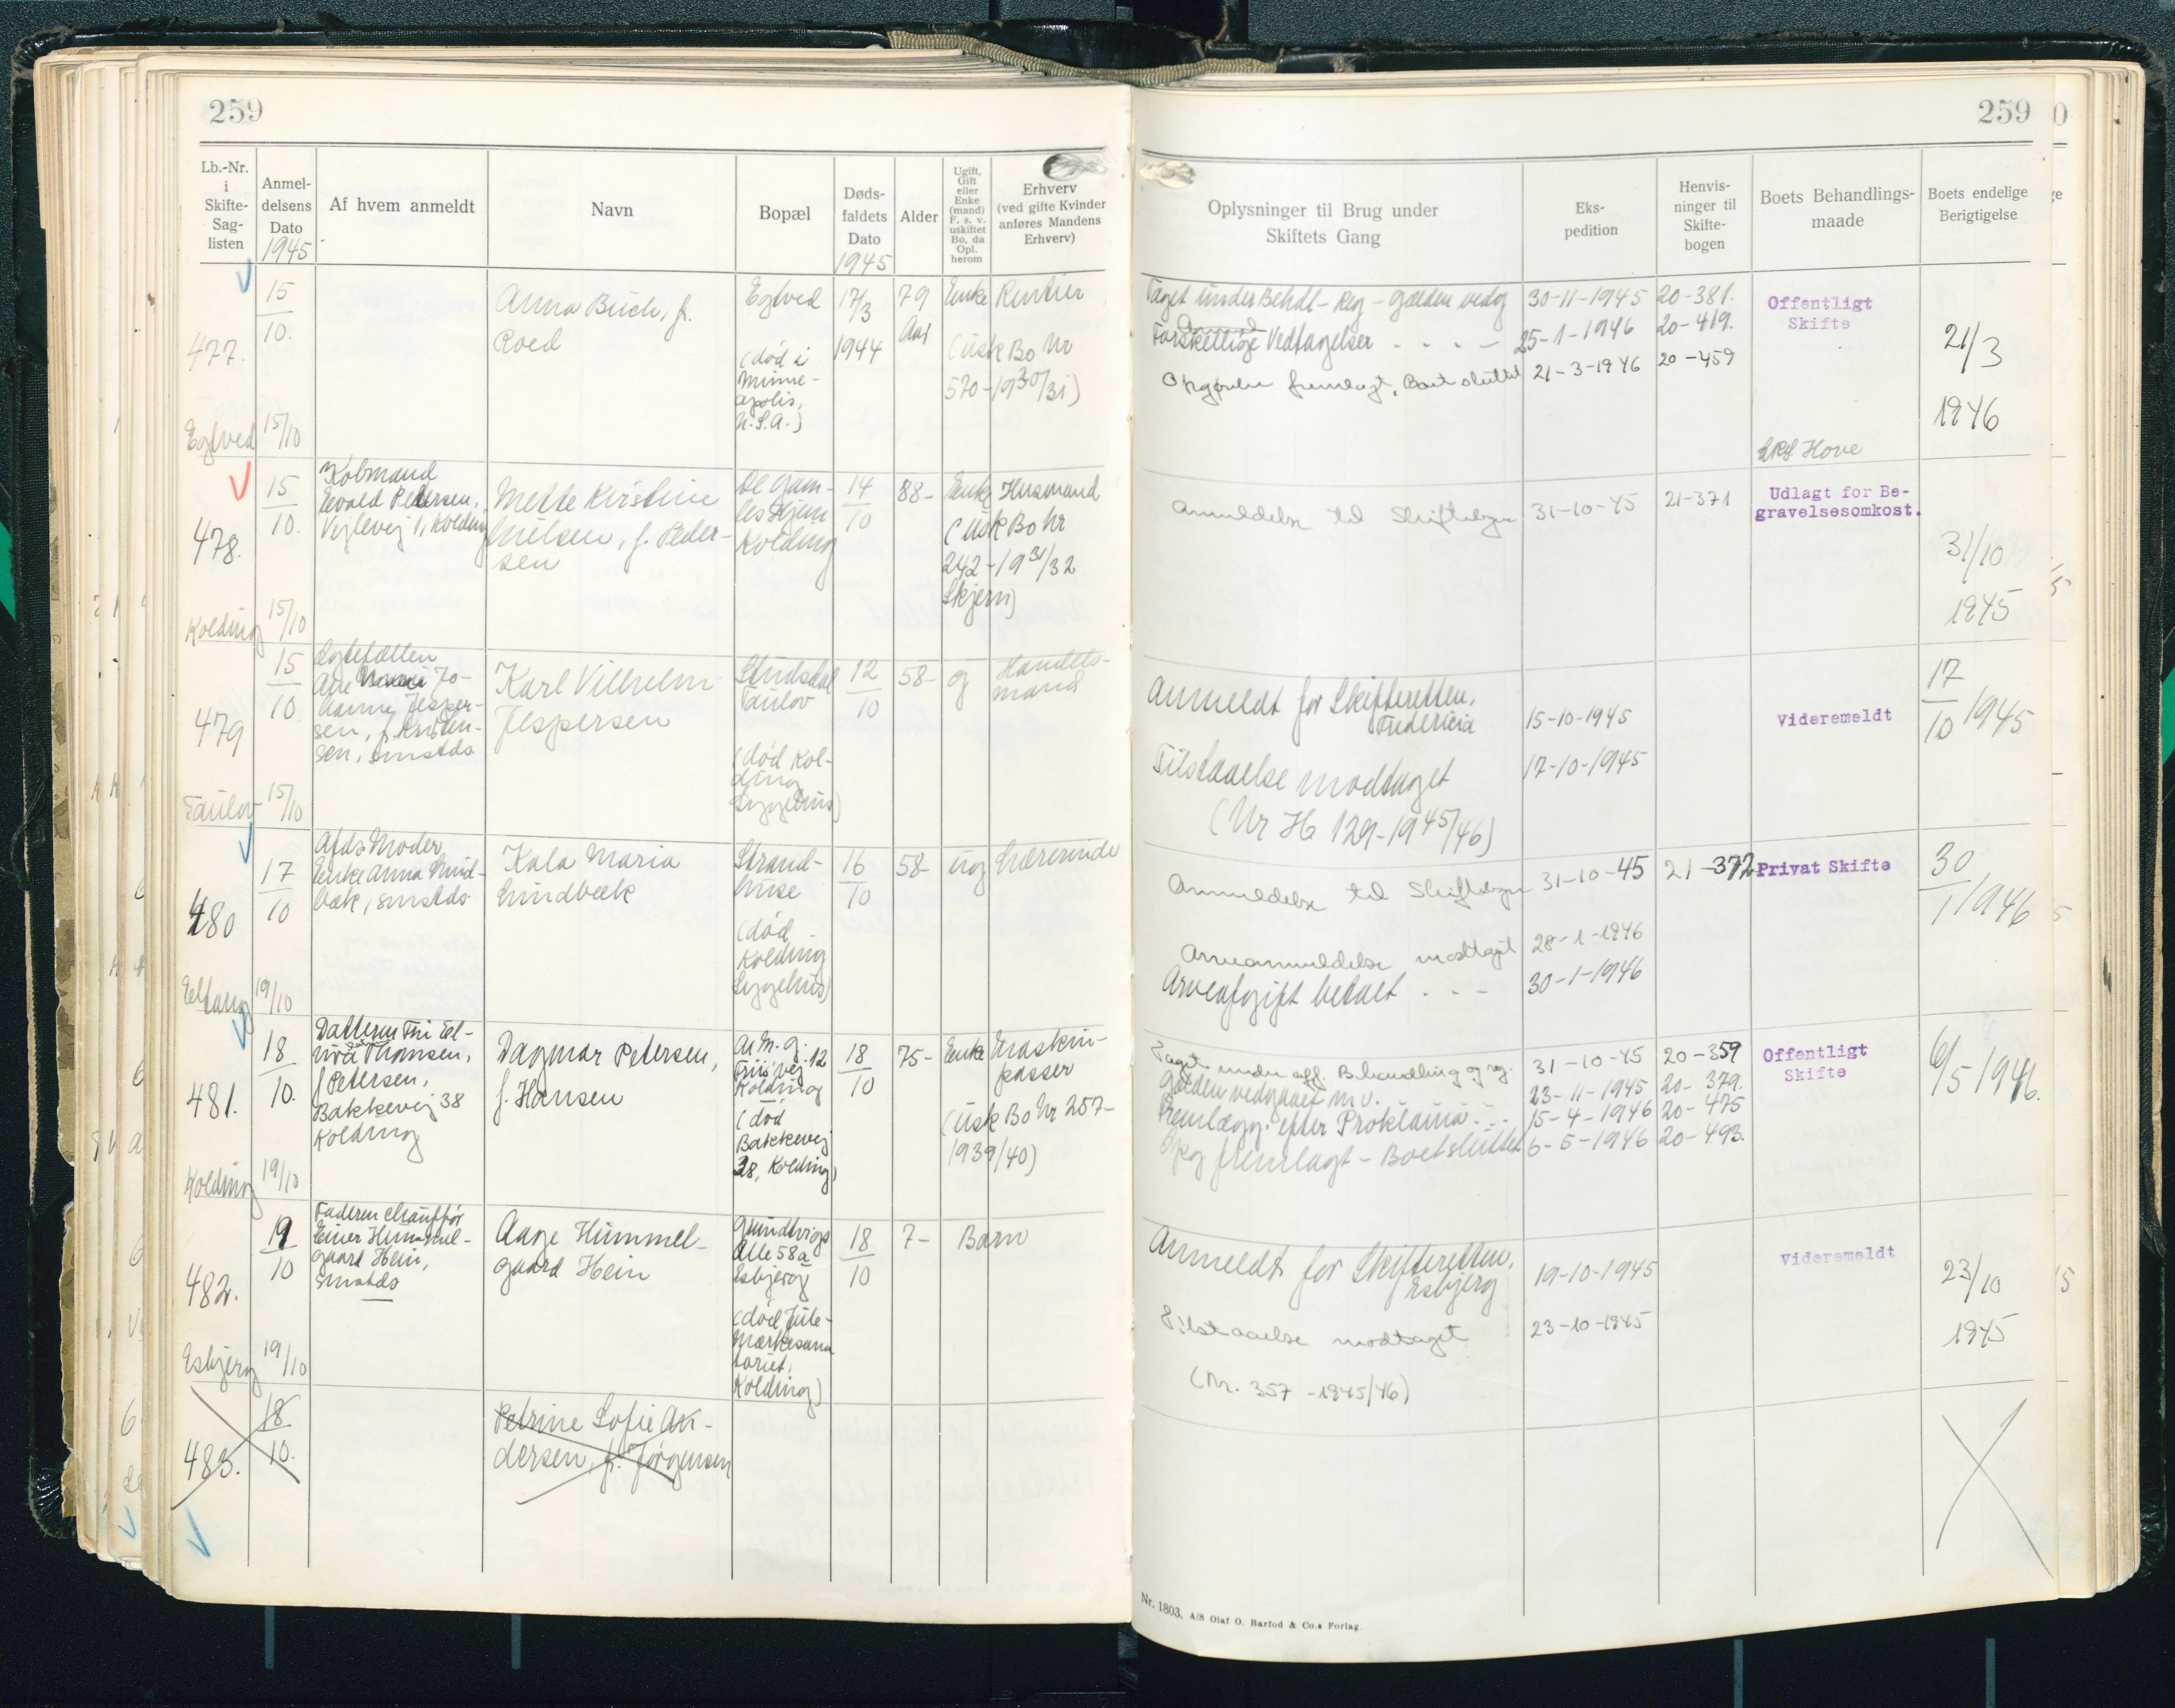 259
Lb.-Nr.
i
Skifte-
Sag-
listen
Anmel-
delsens
Dato
1945
Af hvem anmeldt
Navn
Bopæl
Døds-
faldets
Dato
1945
Alder
Ugift,
Gift
eller
Enke
(mand)
F. s. v.
uskiftet
Bo, da
Opl.
herom
Erhverv
(ved gifte Kvinder
anføres Mandens
Erhverv)
477.
Egtved
15
10.
15/10
Anna Buch, f.
Roed
Egtved
(død i
Minne-
apolis,
U.S.A.)
17/3
1944
79
Aar
Enke Rentier
(usk Bo Nr
570-1930/31)
478.
Kolding
15
10.
15/10
Købmand
Evald Petersen,
Vejlevej 1, Kolding
Mette Kirstine
Nielsen, f. Peder-
sen
De Gam-
les Hjem
Kolding
14
10
88-
Enke Husmand
(usk Bo Nr
242-1931/32
Skjern)
479
Taulov
15
10
15/10
Ægtefællen
Ane Jo-
hanne Jesper-
sen, f. Kristen-
sen, smstds
Karl Vilhelm
Jespersen
Studsdal
Taulov
(død Kol-
ding
Sygehus)
12
10
58-
g
Handels-
mand
480
Eltang
17
10
19/10
Afds Moder,
Enke Anna Lind-
bæk, smstds.
Kala Maria
Lindbæk
Strand-
huse
(død
Kolding
Sygehus)
16
10
58-
ug Lærerinde
481.
Kolding
18
10.
19/10
Datteren Fru El-
vira Thomsen,
f Petersen,
Bakkevej 38
Kolding
Dagmar Petersen,
f. Hansen
Friisvej 12
Kolding
(død
Bakkevej
38, Kolding)
18
10
75-
Enke Maskin-
passer
(usk Bo Nr 257-
1939/40)
482.
Esbjerg
19
10
19/10
Faderen Chauffør
Einer Hummel-
gaard Hein,
smstds
Aage Hummel-
gaard Hein
Grundtvigs
Alle 58a
Esbjerg
(død Jule-
mærkesana-
toriet,
Kolding)
18
10
7-
Barn
483.
18
10.
Petrine Sofie An-
dersen, f. Jørgensen
259
Oplysninger til Brug under
Skiftets Gang
Eks-
pedition
Henvis-
ninger til
Skifte-
bogen
Boets Behandlings-
maade
Boets endelige
Berigtigelse
Taget under Behdl - Reg - Gælden vedg 30-11-1945 20-381.
Forskellige Vedtagelser - - - - 25-1-1946 20-419.
Opgørelse fremlagt, Boet sluttet 21-3-1946 20-459
Offentligt
Skifte
LRS Hove
21/3
1946
Anmeldelse til Skiftebogen 31-10-45 21-371
Udlagt for Be-
gravelsesomkost.
31/10
1945
Anmeldt for Skifteretten,
Fredericia 15-10-1945
Tilstaaelse modtaget 17-10-1945
(Nr H 129-1945/46)
Videremeldt
17
10 1945
Anmeldelse til Skiftebogen 31-10-45 21-372
Arveanmeldelse modtaget 28-1-1946
Arveafgift betalt - - - 30-1-1946
Privat Skifte
30
1 1946
Taget under off. Behandling og reg. 31-10-45 20-359
Gælden vedgaaet m.v. 23-11-1945 20-379.
Fremlægg. efter Proklama - - - 15-4-1946 20-475
Opg fremlagt - Boet sluttet 6-5-1946 20-493.
Offentligt
Skifte
6/5 1946.
Anmeldt for Skifteretten,
Esbjerg 19-10-1945
Tilstaaelse modtaget 23-10-1945
(Nr. 357 -1945/46)
Videremeldt
23/10
1945
Nr. 1803. A/S Olaf O. Barfod & Co.s Forlag.